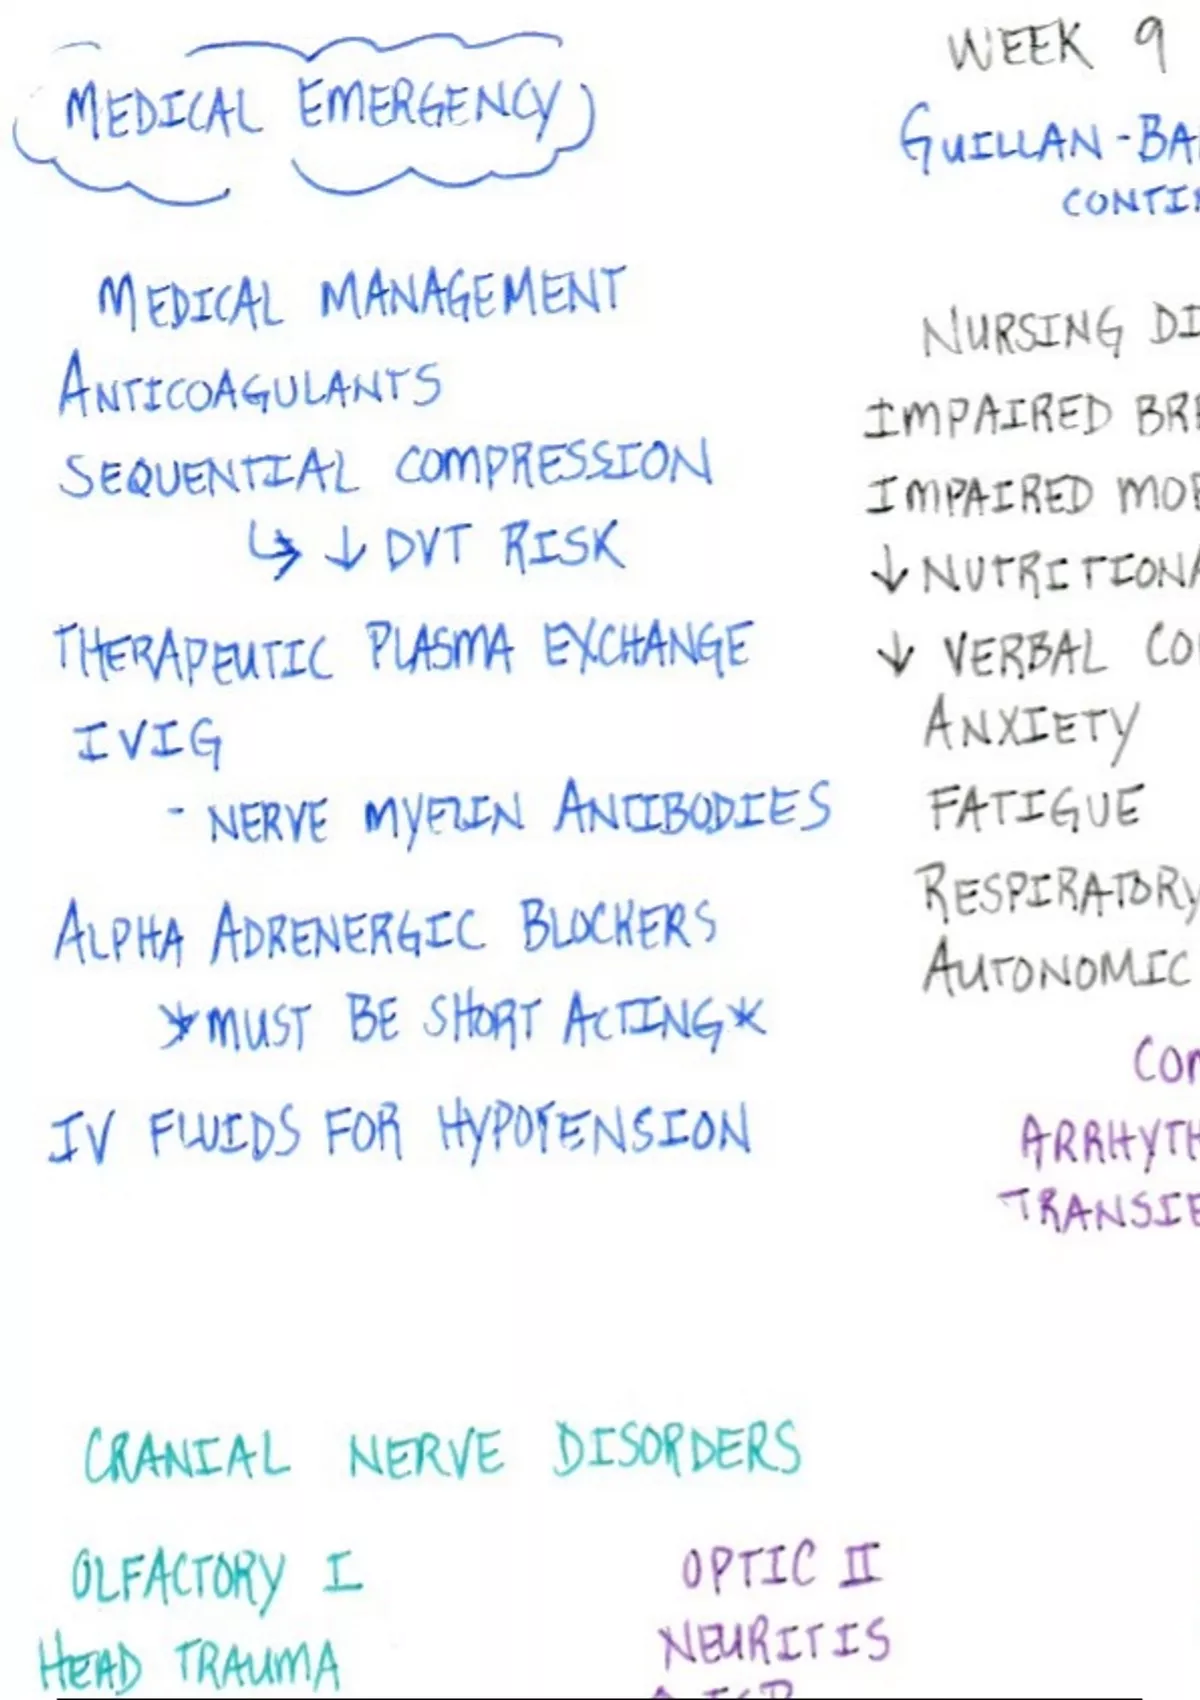 MEDICAL EMERGENCY
MEDICAL MANAGEMENT
ANTICOAGULANTS
SEQUENTIAL COMPRESSION
↳ ↓ DVT RISK
THERAPEUTIC PLASMA EXCHANGE
IVIG
- NERVE MYELIN ANTIBODIES
ALPHA ADRENERGIC BLOCKERS
*MUST BE SHORT ACTING*
IV FLUIDS FOR HYPOTENSION
WEEK 9
GUILLAN-BA
CONTIN
NURSING DI
IMPAIRED BRE
IMPAIRED MOB
↓ NUTRITIONA
↓ VERBAL CO
ANXIETY
FATIGUE
RESPIRATORY
AUTONOMIC
COM
ARRHYTH
TRANSIE
CRANIAL NERVE DISORDERS
OLFACTORY I
HEAD TRAUMA
OPTIC II
NEURITIS